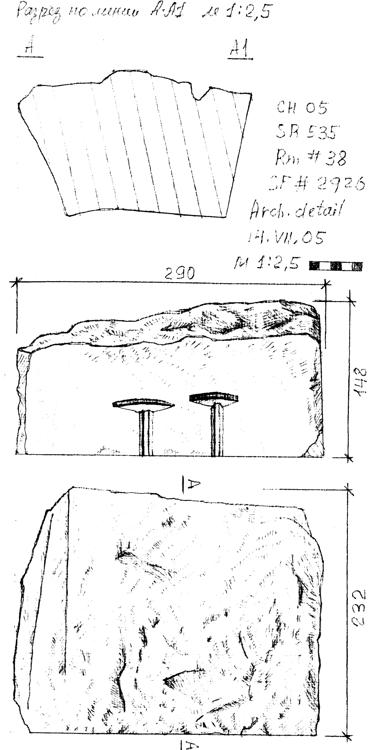 Разрез по линии А-А1 м 1:2,5
А А1
CH 05
SR 535
Rm # 38
SF # 2926
Arch. detail
14.VII.05
М 1:2,5
290
148
А
232
А